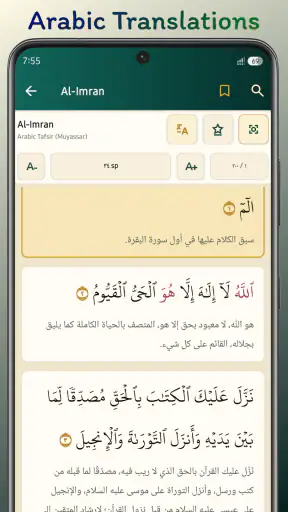 Arabic Translations
7:55
69
Al-Imran
Al-Imran
Arabic Tafsir (Muyassar)
A-
٢٤ sp
A+
١ / ٢٠٠
الٓمٓ ١
سبق الكلام عليها في أول سورة البقرة.
ٱللَّهُ لَآ إِلَـٰهَ إِلَّا هُوَ ٱلْحَىُّ ٱلْقَيُّومُ ٢
هو الله، لا معبود بحق إلا هو، المتصف بالحياة الكاملة كما يليق
بجلاله، القائم على كل شيء.
نَزَّلَ عَلَيْكَ ٱلْكِتَـٰبَ بِٱلْحَقِّ مُصَدِّقًا لِّمَا
بَيْنَ يَدَيْهِ وَأَنزَلَ ٱلتَّوْرَىٰةَ وَٱلْإِنجِيلَ ٣
نَزَّل عليك القرآن بالحق الذي لا ريب فيه، مصدقًا لما قبله من
كتب ورسل، وأنزل التوراة على موسى عليه السلام، والإنجيل
على عيسى عليه السلام من قبل نزول القرآن؛ لإرشاد المتقين إلى